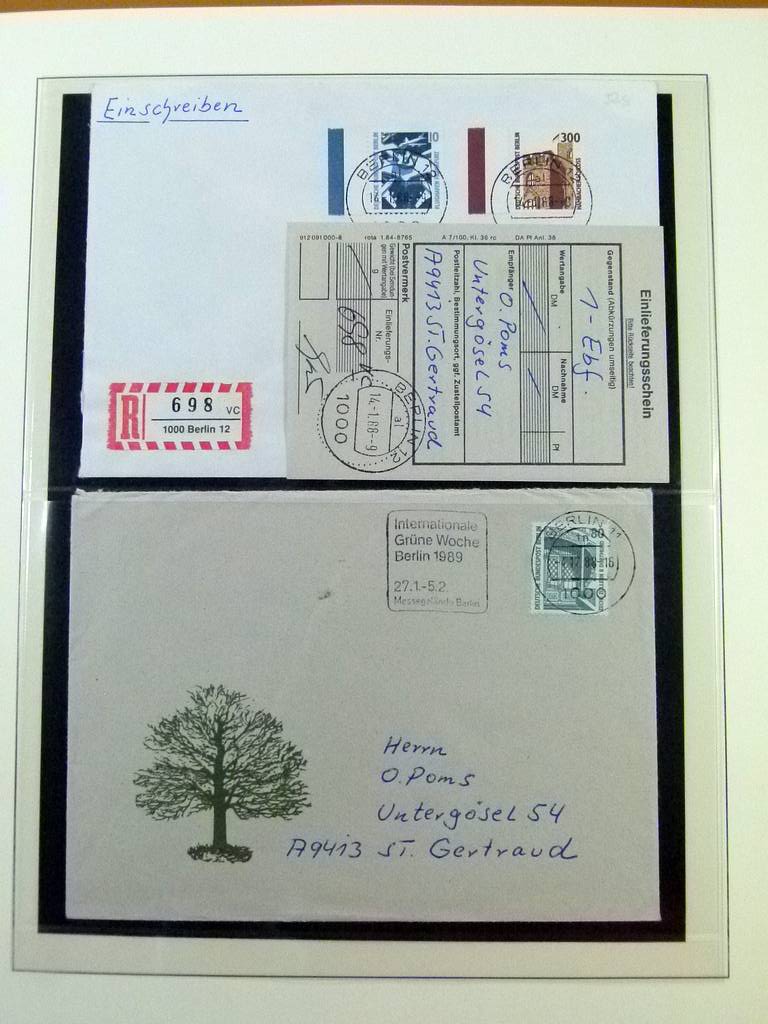 Einschreiben
10
300
BERLIN 12
BERLIN 12
R 698 VC
1000 Berlin 12
Einlieferungsschein
Bitte Rückseite beachten!
Gegenstand (Abkürzungen umseitig)
1 - Ebf.
Wertangabe DM
Nachnahme DM Pf
Empfänger O. Poms
Untergösel 54
Postleitzahl, Bestimmungsort, ggf. Zustellpostamt
A9413 ST. Gertraud
Postvermerk
Einlieferungs-Nr.
698
Gewicht (bei Sendungen mit Wertangabe)
g
BERLIN 12
al
14-1.88--9
1000
912 091 000-8 rota 1.84-8765 A 7/100, Kl. 36 rc DA PI Anl. 36
Internationale
Grüne Woche
Berlin 1989
27.1.-5.2.
Messegelände Berlin
BERLIN 11
80
1000
Herrn
O. Poms
Untergösel 54
A9413 ST. Gertraud